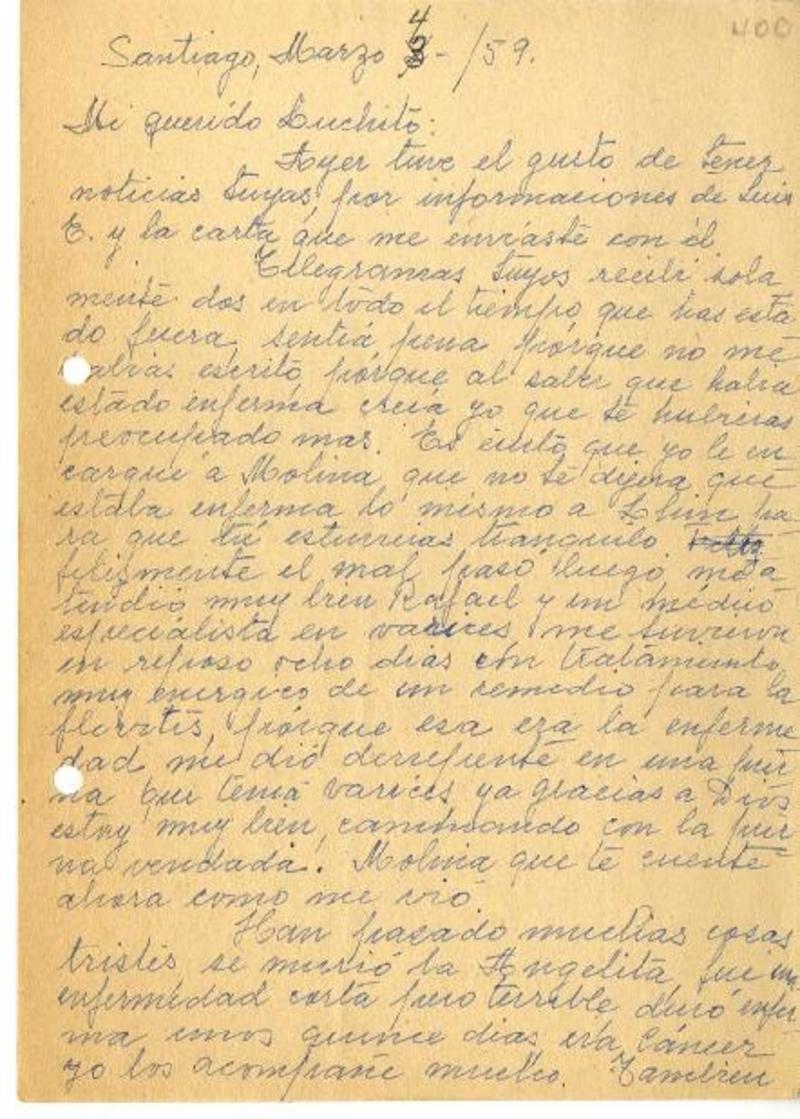 400
Santiago, Marzo 4 - /59.
Mi querido Luchito:
Ayer tuve el gusto de tener
noticias tuyas, por informaciones de Luis
E. y la carta que me enviaste con él.
Telegramas tuyos recibí sola
mente dos en todo el tiempo que has esta
do fuera, sentía pena porque no me
abrías escrito, porque al saber que había
estado enferma creía yo que te hubieras
preocupado mas. Es cierto que yo le en
cargué a Molina que no te dijera que
estaba enferma lo mismo a Lhin pa
ra que tú estuvieras tranquilo
felizmente el mal paso luego, me a
tendió muy bien Rafael y un médico
especialista en varices, me tuvieron
en reposo ocho dias con tratamiento
muy energico de un remedio para la
flevitis, porque esa era la enferme
dad me dió derrepente en una pier
na que tenía varices ya gracias a Dios
estoy muy bien, caminando con la pier
na vendada. Molina que te cuente
ahora como me vió.
Han pasado muchas cosas
tristes, se murió la Angelita, fue una
enfermedad corta pero terrible duró enfer
ma unos quince dias era Cáncer
yo los acompañe mucho. Tambien